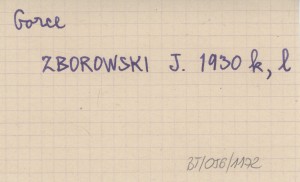 Gorce
ZBOROWSKI J. 1930 k, l
ZJ/016/1172